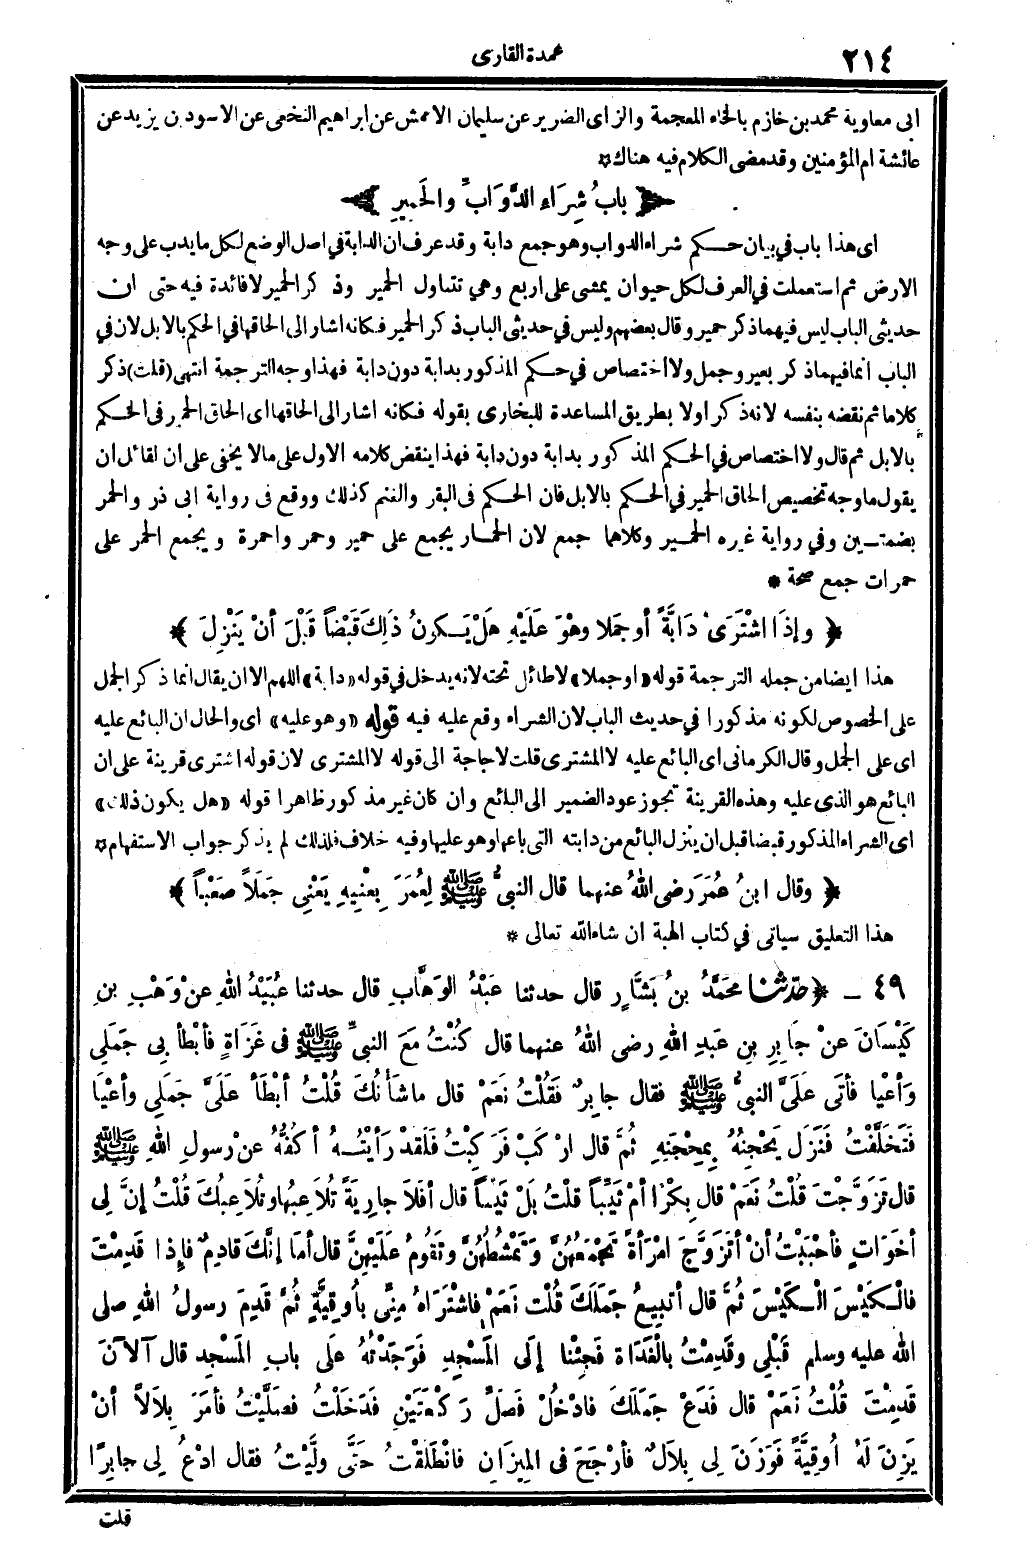 ٢١٤
عمدة القارى
ابى معاوية محمد بن خازم بالخاء المعجمة والزاى الضرير عن سليمان الاعمش عن ابراهيم النخعى عن الاسود بن يزيد عن
عائشة ام المؤمنين وقد مضى الكلام فيه هناك *
﴿ بابُ شِرَاءِ الدَّوَابِّ والحَمِيرِ ﴾
اى هذا باب فى بيان حكم شراء الدواب وهو جمع دابة وقد عرف ان الدابة فى اصل الوضع لكل ما يدب على وجه
الارض ثم استعملت فى العرف لكل حيوان يمشى على اربع وهي تتناول الحمير وذكر الحمير لا فائدة فيه حتى ان
حديثى الباب ليس فيهما ذكر حمير وقال بعضهم وليس فى حديثى الباب ذكر الحمير فكانه اشار الى الحاقها فى الحكم بالابل لان فى
الباب انما فيهما ذكر بعير وجمل ولا اختصاص فى حكم المذكور بدابة دون دابة فهذا وجه الترجمة انتهى (قلت) ذكر
كلاما ثم نقضه بنفسه لانه ذكر اولا بطريق المساعدة للبخارى بقوله فكانه اشار الى الحاقها اى الحاق الحمر فى الحكم
بالابل ثم قال ولا اختصاص فى الحكم المذكور بدابة دون دابة فهذا ينقض كلامه الاول على مالا يخفى على ان لقائل ان
يقول ما وجه تخصيص الحاق الحمير فى الحكم بالابل فان الحكم فى البقر والغنم كذلك ووقع فى رواية ابى ذر والحمر
بضمتين وفي رواية غيره الحمير وكلاهما جمع لان الحمار يجمع على حمير وحمر واحمرة ويجمع الحمر على
حمرات جمع صحة *
﴿ وإذَا اشْتَرَى دَابَّةً أوجَمَلا وهْوَ عَلَيْهِ هَلْ يَكونُ ذَلِكَ قَبْضاً قَبْلَ أنْ يَنْزِلَ ﴾
هذا ايضا من جمله الترجمة قوله «او جملا» لا طائل تحته لانه يدخل فى قوله «دابة» اللهم الا ان يقال انما ذكر الجمل
على الخصوص لكونه مذكورا فى حديث الباب لان الشراء وقع عليه فيه قوله «وهو عليه» اى والحال ان البائع عليه
اى على الجمل وقال الكرمانى اى البائع عليه لا المشترى قلت لا حاجة الى قوله لا المشترى لان قوله اشترى قرينة على ان
البائع هو الذى عليه وهذه القرينة تجوز عود الضمير الى البائع وان كان غير مذكور ظاهرا قوله «هل يكون ذلك»
اى الشراء المذكور قبضا قبل ان ينزل البائع من دابته التى باعها وهو عليها وفيه خلاف فلذلك لم يذكر جواب الاستفهام *
﴿ وقال ابنُ عُمَرَ رضى اللهُ عنهما قال النبىُّ ﷺ لِعُمَرَ بِعْنِيهِ يَعْنِى جَمَلاً صَعْباً ﴾
هذا التعليق سياتى فى كتاب الهبة ان شاءالله تعالى *
٤٩ - ﴿حدّثنا محمَّدُ بنُ بَشَّارٍ قال حدثنا عَبْدُ الوَهَّابِ قال حدثنا عُبَيْدُ اللهِ عنْ وَهْبِ بنِ
كَيْسَانَ عنْ جَابِرِ بنِ عبدِ اللهِ رضى اللهُ عنهما قال كُنْتُ مَعَ النبىِّ ﷺ فى غَزَاةٍ فأبْطأ بِى جَمَلِى
وَأعْيا فأتَى عَلَىَّ النبىُّ ﷺ فقال جابِرٌ فَقُلْتُ نَعَمْ قال ماشأْنُكَ قُلْتُ أبْطَأَ عَلَىَّ جَمَلِى وأعْيَا
فَتَخَلَّفْتُ فَنَزَلَ يَحْجِنُهُ بِمِحْجَنِهِ ثُمَّ قال ارْكَبْ فَرَكِبْتُ فَلَقَدْ رَأيْتُهُ أكُفُّهُ عنْ رسولِ اللهِ ﷺ
قال تَزَوَّجْتَ قُلْتُ نَعَمْ قال بِكْرًا أمْ ثَيِّباً قلْتُ بَلْ ثَيِّباً قال أفَلاَ جارِيَةً تُلاَعِبُها وتُلاَعِبُكَ قُلْتُ إنَّ لِى
أخَوَاتٍ فأحْبَبْتُ أنْ أتَزَوَّجَ امْرَأةً تَجْمَعُهُنَّ وتَمْشُطُهُنَّ وتَقُومُ عَلَيْهِنَّ قال أمَا إنَّكَ قادِمٌ فإذا قَدِمْتَ
فالْكَيْسَ الْكَيْسَ ثُمَّ قال أتَبِيعُ جَمَلَكَ قُلْت نَعَمْ فاشْتَرَاهُ مِنِّى بأُوقِيَّةٍ ثُمَّ قَدِمَ رسولُ اللهِ صلى
الله عليه وسلم قَبْلِى وقَدِمْتُ بالْغَدَاةِ فَجِئْنا إلَى المَسْجِدِ فَوَجَدْتُهُ عَلَى بابِ المَسْجِدِ قال آلْآنَ
قَدِمْتَ قُلْتُ نَعَمْ قال فَدَعْ جَمَلَكَ فادْخُلْ فَصَلِّ رَكْعَتَيْنِ فَدَخَلْتُ فصَلَّيْتُ فأمَرَ بِلالاً أنْ
يَزِنَ لَهُ أُوقِيَّةً فَوَزَنَ لِى بِلاَلٌ فأرْجَحَ فى المِيزَانِ فانْطَلَقْتُ حَتَّى ولَّيْتُ فقال ادْعُ لِى جابِرًا
قلت